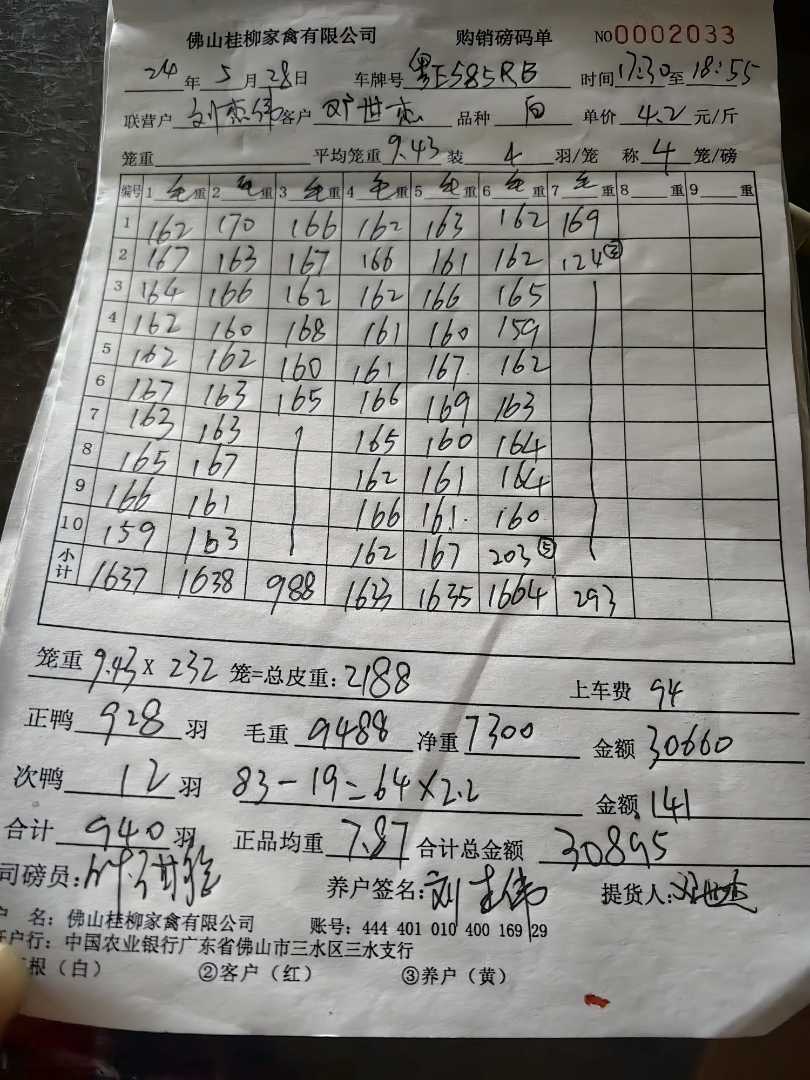 佛山桂柳家禽有限公司 购销磅码单 NO0002033
24年5月28日 车牌号 粤E585RB 时间17:30至18:55
联营户 刘志伟 客户 邓世杰 品种 白 单价 4.2 元/斤
笼重 平均笼重 9.43 装 4 羽/笼 称 4 笼/磅
编号 1 毛重 2 毛重 3 毛重 4 毛重 5 毛重 6 毛重 7 毛重 8 重 9 重
1 162 170 166 162 163 162 169
2 167 163 167 166 161 162 124②
3 164 166 162 162 166 165
4 162 160 168 161 160 159
5 162 162 160 161 167 162
6 167 163 165 166 169 163
7 163 163 165 160 164
8 165 167 162 161 164
9 166 161 166 161 160
10 159 163 162 167 203⑤
小计 1637 1638 988 1633 1635 1664 293
笼重 9.43 x 232 笼=总皮重: 2188 上车费 94
正鸭 928 羽 毛重 9488 净重 7300 金额 30660
次鸭 12 羽 83-19=64×2.2 金额 141
合计 940 羽 正品均重 7.87 合计总金额 30895
司磅员: 养户签名: 提货人:
户 名: 佛山桂柳家禽有限公司 账号: 444 401 010 400 169 29
开户行: 中国农业银行广东省佛山市三水区三水支行
根(白) ②客户(红) ③养户(黄)